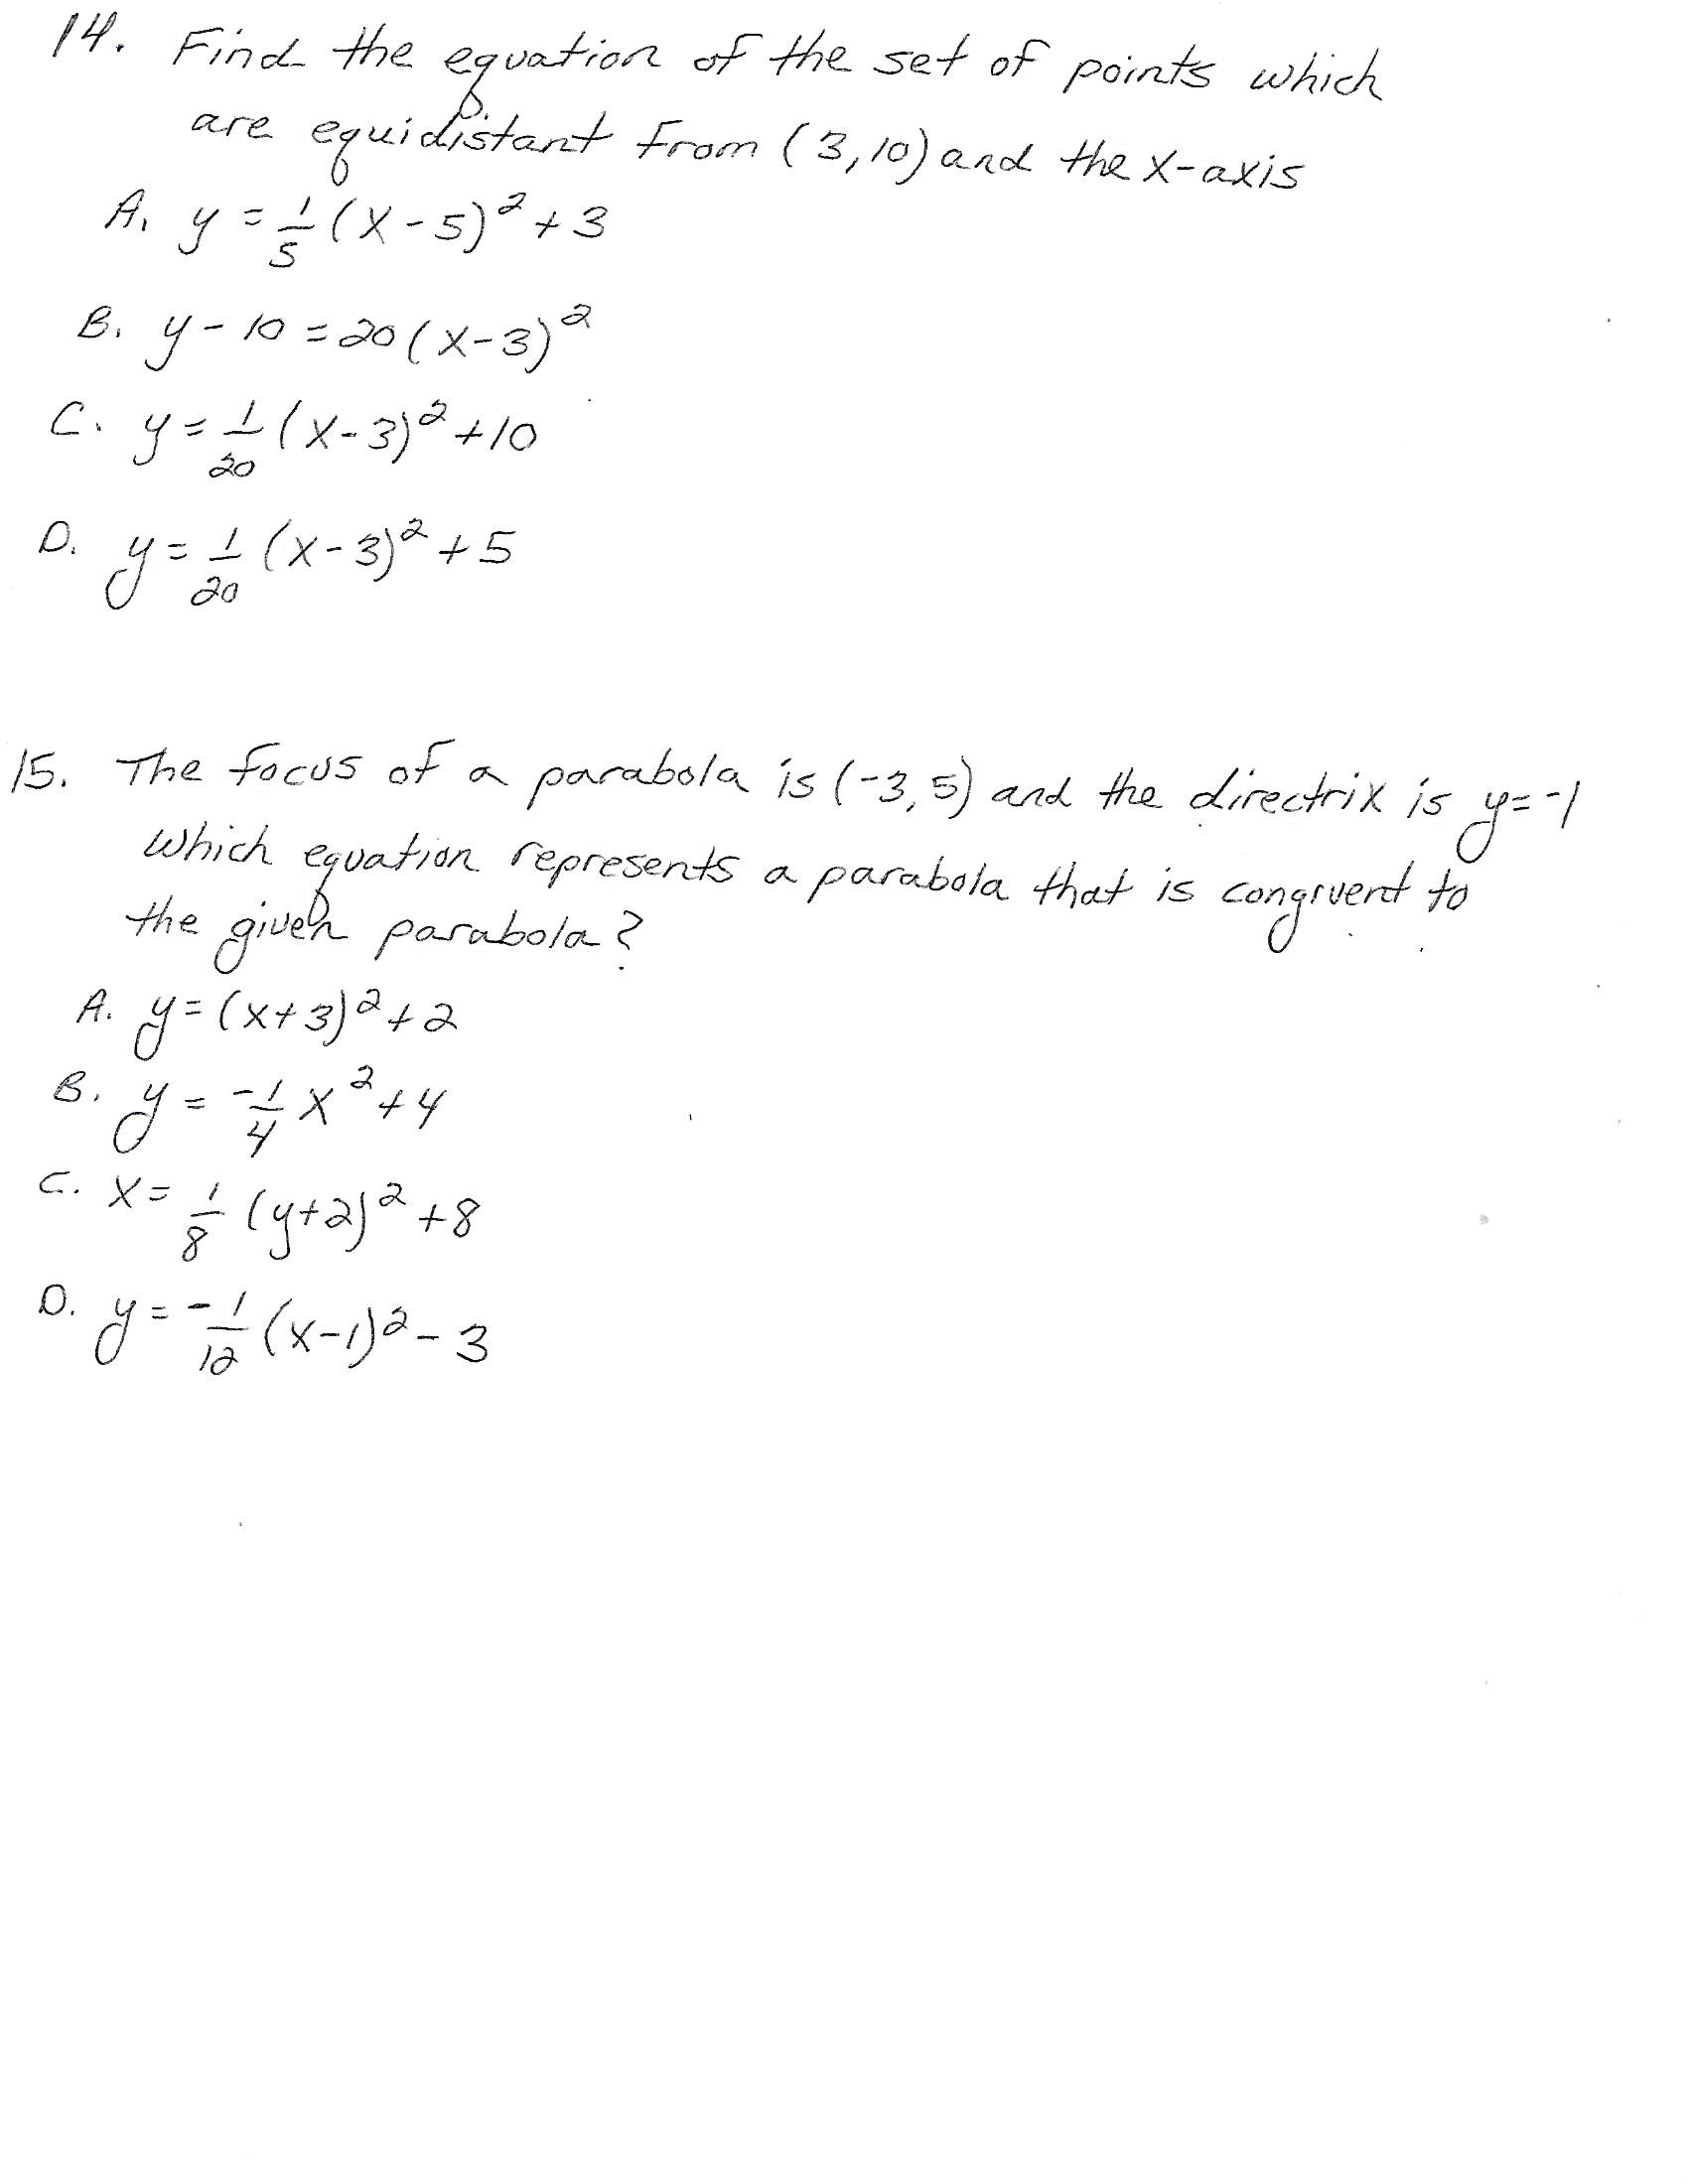 14. Find the equation of the set of points which
are equidistant from (3,10) and the x-axis
A. y = 1/5 (x - 5)² + 3
B. y - 10 = 20 (x - 3)²
C. y = 1/20 (x - 3)² + 10
D. y = 1/20 (x - 3)² + 5
15. The focus of a parabola is (-3, 5) and the directrix is y = -1
Which equation represents a parabola that is congruent to
the given parabola?
A. y = (x + 3)² + 2
B. y = -1/4 x² + 4
C. x = 1/8 (y + 2)² + 8
D. y = -1/12 (x - 1)² - 3